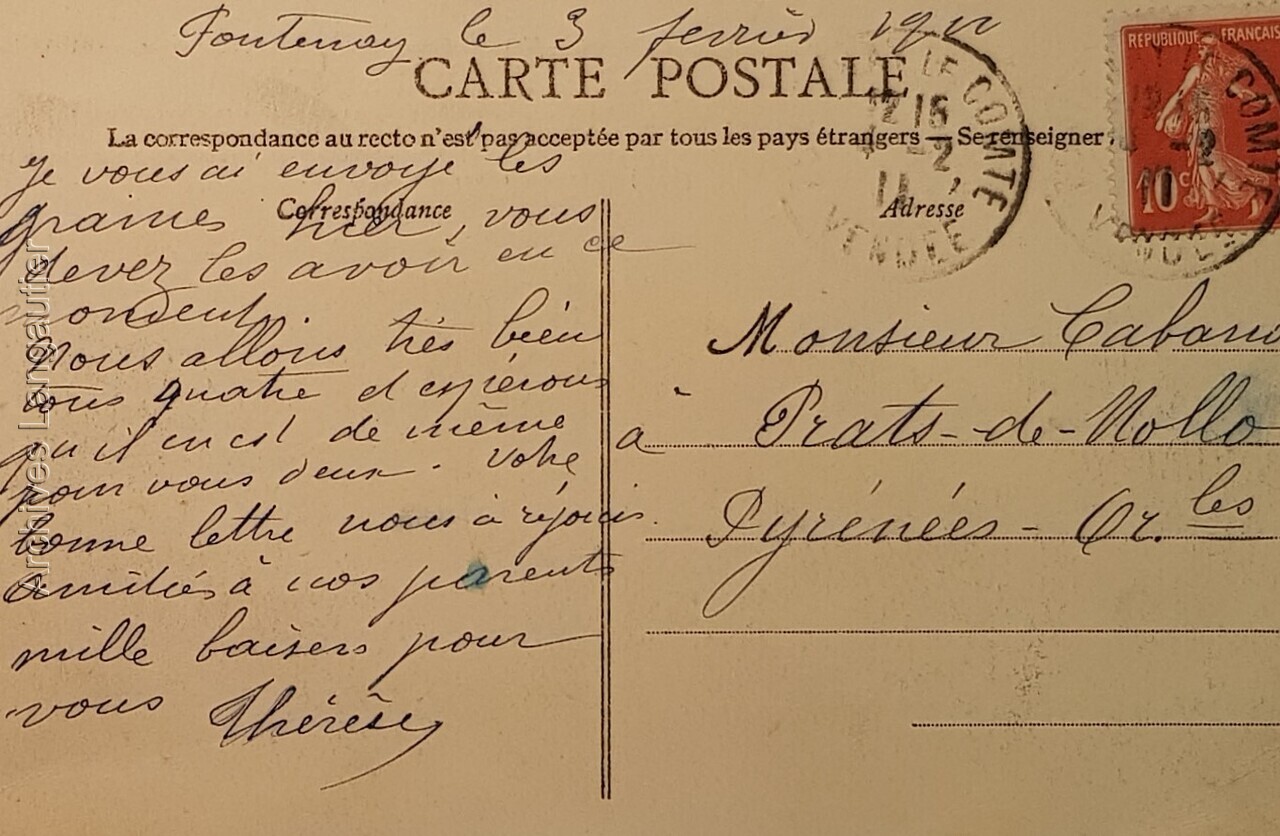 Fontenay le 3 fevrier 1911
CARTE POSTALE
La correspondance au recto n'est pas acceptée par tous les pays étrangers — Se renseigner
Correspondance
Adresse
je vous ai envoyé les
graines hier, vous
devez les avoir en ce
moment.
Nous allons très bien
tous quatre et espérons
qu'il en est de même
pour vous deux. Votre
bonne lettre nous à réjouis.
amitiés à nos parents
mille baisers pour
vous Thérèse
Monsieur
à Prats-de-Mollo
Pyrénées-Or.les
LE COMTE
12 15
-2
11
VENDEE
REPUBLIQUE FRANÇAISE
10c
COMTE
Archives Lengautier